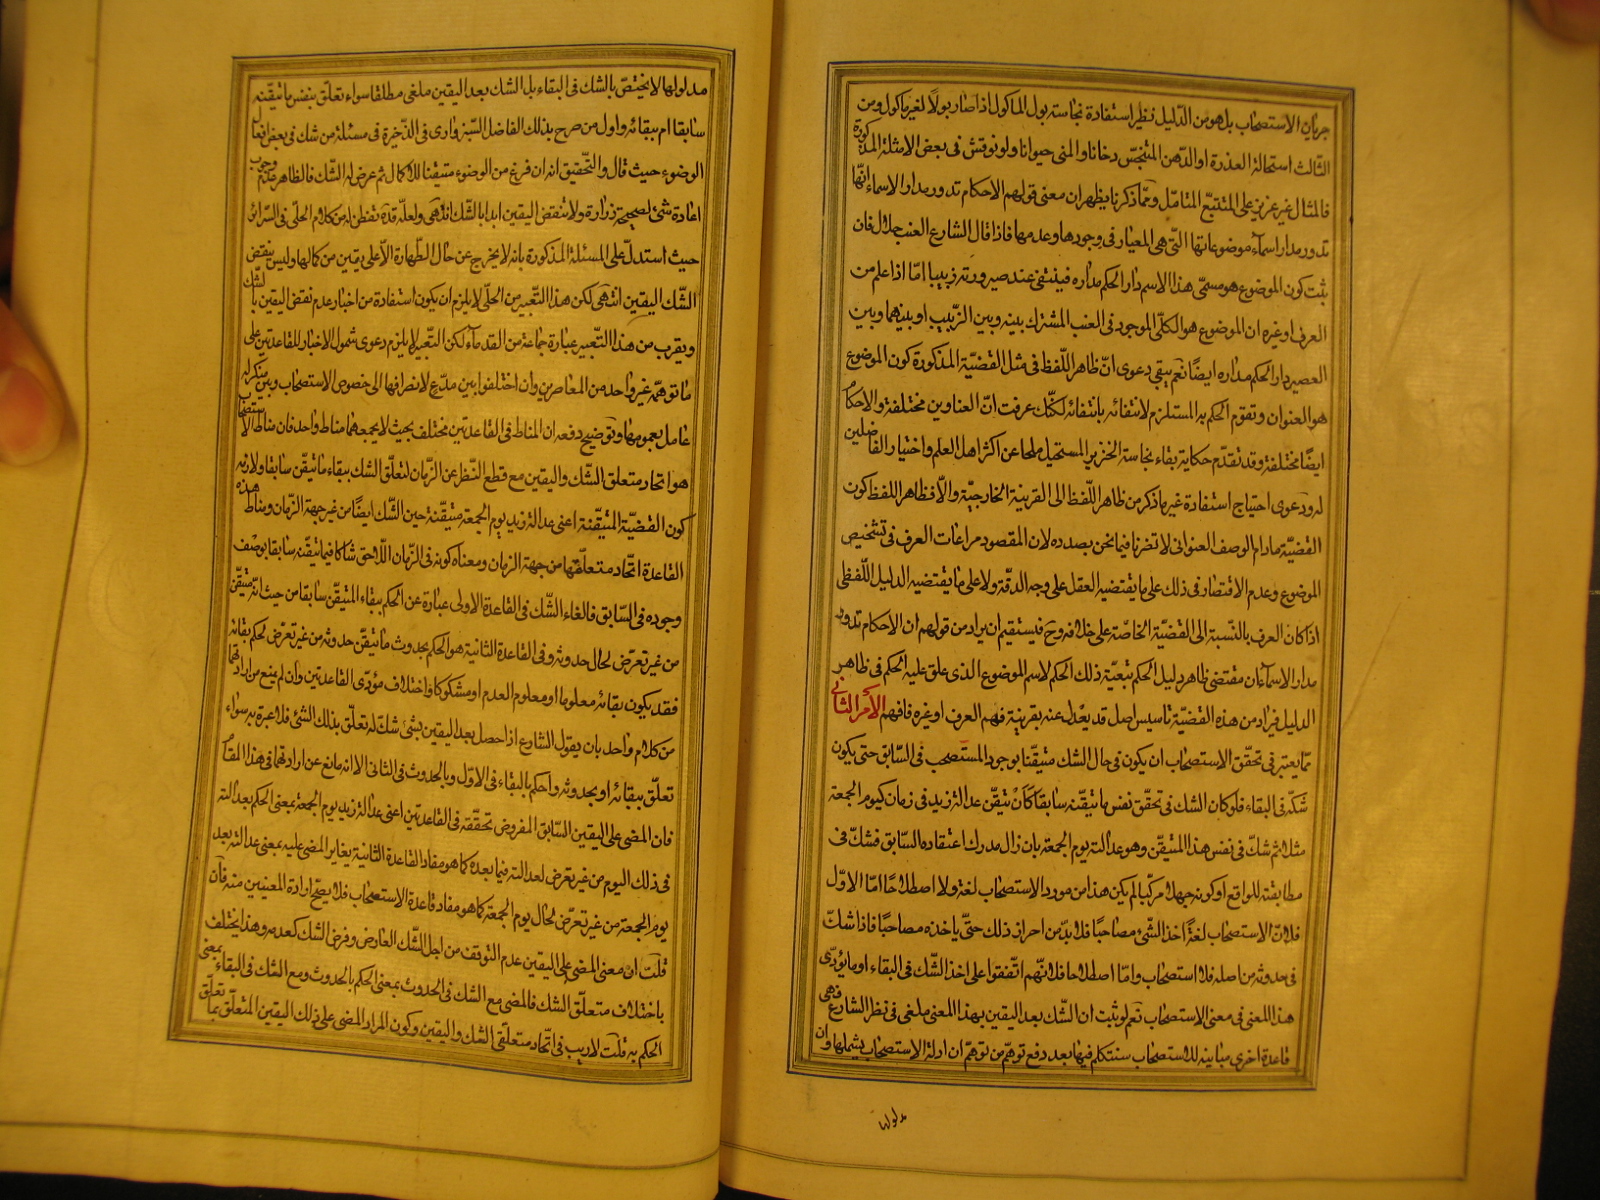 جريان الاستصحاب بل هو من الدّليل نظير استفادة نجاسة بول الماكول اذا صار بولاً لغير ماكول ومن
الثّالث استحالة العذرة او الدّهن المتنجّس دخانا والمنى حيوانا ولو نوقش فى بعض الامثلة المذكورة
فالمثال غير عزيز على المتتبّع المتامّل وممّا ذكرنا يظهر ان معنى قولهم الاحكام تدور مدار الاسماء انّها
تدور مدار اسمآء موضوعاتها التّى هى المعيار فى وجودها وعدمها فاذا قال الشارع العنب حلال فان
ثبت كون الموضوع هو مسمّى هذا الاسم دار الحكم مداره فينتفى عند صيرورته زبيبا امّا اذا علم من
العرف او غيره ان الموضوع هو الكلّى الموجود فى العنب المشترك بينه وبين الزّبيب او بينهما وبين
العصير دار الحكم مداره ايضًا نعم يبقى دعوى انّ ظاهر اللّفظ فى مثل القضيّة المذكورة كون الموضوع
هو العنوان وتقوّم الحكم به المستلزم لانتفائه بانتفائه لكنّك عرفت انّ العناوين مختلفة والاحكام
ايضًا مختلفة وقد تقدّم حكاية بقاء نجاسة الخنزير المستحيل ملحا عن اكثر اهل العلم واختيار الفاضلين
له ودعوى احتياج استفادة غير ما ذكر من ظاهر اللّفظ الى القرينة الخارجيّة والّا فظاهر اللفظ كون
القضيّة مادام الوصف العنوانى لا تضرّنا فيما نحن بصدده لان المقصود مراعات العرف فى تشخيص
الموضوع وعدم الاقتصار فى ذلك على ما يقتضيه العقل على وجه الدقّة ولا على ما يقتضيه الدليل اللّفظى
اذا كان العرف بالنّسبة الى القضيّة الخاصّة على خلافه وح فيستقيم ان يراد من قولهم ان الاحكام تدور
مدار الاسمآء ان مقتضى ظاهر دليل الحكم تبعيّة ذلك الحكم لاسم الموضوع الذى علق عليه الحكم فى ظاهر
الدليل فيراد من هذه القضيّة تاسيس اصل قد يعدل عنه بقرينة فهم العرف او غيره فافهم الأمر الثانى
ممّا يعتبر فى تحقّق الاستصحاب ان يكون فى حال الشك متيقّنا بوجود المستصحب فى السّابق حتى يكون
شكّه فى البقاء فلو كان الشك فى تحقّق نفس ما تيقّنه سابقًا كَانْ تيقّن عدالة زيد فى زمان كيوم الجمعة
مثلا ثم شكّ فى نفس هذا المتيقّن وهو عدالته يوم الجمعة بان زال مدرك اعتقاده السّابق فشكّ فى
مطابقته للواقع او كونه جهلا مركّبا لم يكن هذا من مورد الاستصحاب لغة ولا اصطلاحًا امّا الاوّل
فلانّ الاستصحاب لغةً اخذ الشّئ مصاحبًا فلابدّ من احراز ذلك حتّى ياخذه مصاحبًا فاذا شكّ
فى حدوثه من اصله فلا استصحاب وامّا اصطلاحا فلانّهم اتّفقوا على اخذ الشّك فى البقاء او ما يؤدّى
هذا المعنى فى معنى الاستصحاب نعم لو ثبت ان الشّك بعد اليقين بهذا المعنى ملغى فى نظر الشارع فهى
قاعدة اخرى مباينه للاستصحاب سنتكلم فيها بعد دفع توهّم من توهّم ان ادلة الاستصحاب يشملها وان
مدلولها
مدلولها لا يختصّ بالشك فى البقاء بل الشك بعد اليقين ملغى مطلقا سواء تعلّق بنفس ما تيقّنه
سابقا ام ببقائه واول من صرح بذلك الفاضل السّبزوارى فى الذّخيرة فى مسئلة من شك فى بعض افعال
الوضوء حيث قال والتّحقيق انه ان فرغ من الوضوء متيقنا للاكمال ثم عرض له الشّك فالظاهر عدم وجوب
اعادة شئ لصحيحة زرارة ولا تنقض اليقين ابدا بالشّك انتهى ولعلّه قده تفطّن له من كلام الحلّى فى السّرائر
حيث استدلّ على المسئلة المذكورة بانه لا يخرج عن حال الطّهارة الّا على يقين من كمالها وليس ينقض
الشّك اليقين انتهى لكن هذا التّعبير من الحلّى لا يلزم ان يكون استفادة من اخبار عدم نقض اليقين بالشّك
ويقرب من هذا التعبير عبارة جماعة من القدمآء لكن التعبير لا يلزم دعوى شمول الاخبار للقاعدتين على
ما توهّمه غير واحد من المعاصرين وان اختلفوا بين مدّع لانصرافها الى خصوص الاستصحاب وبين منكر له
عامل بعمومها وتوضيح دفعه ان المناط فى القاعدتين مختلف بحيث لا يجمعهما مناط واحد فان مناط الاستصحاب
هو اتحاد متعلق الشّك واليقين مع قطع النّظر عن الزّمان لتعلّق الشك ببقاء ما تيقّن سابقا ولازمه
كون القضيّة المتيقّنة اعنى عدالة زيد يوم الجمعة متيقّنة حين الشّك ايضًا من غير جهة الزّمان ومناط هذه
القاعدة اتّحاد متعلّقهما من جهة الزمان ومعناه كونه فى الزّمان اللّاحق شاكا فيما تيقّنه سابقا بوصف
وجوده فى السّابق فالغاء الشّك فى القاعدة الاولى عبارة عن الحكم ببقاء المتيقّن سابقا من حيث انّه متيقّن
من غير تعرّض لحال حدوثه وفى القاعدة الثانية هو الحكم بحدوث ما تيقّن حدوثه من غير تعرّض لحكم بقائه
فقد يكون بقائه معلوما او معلوم العدم او مشكوكا واختلاف مؤدّى القاعدتين وان لم يمنع من ارادتهما
من كلام واحد بان يقول الشارع اذا حصل بعد اليقين بشئ شك له تعلّق بذلك الشئ فلا عبرة به سواء
تعلّق ببقائه او بحدوثه واحكم بالبقاء فى الاوّل وبالحدوث فى الثانى الا انه مانع عن ارادتهما فى هذا المقام
فان المضى على اليقين السّابق المفروض تحقّقه فى القاعدتين اعنى عدالة زيد يوم الجمعة بمعنى الحكم بعدالته
فى ذلك اليوم من غير تعرض لعدالته فيما بعده كما هو مفاد القاعدة الثانية يغاير المضى عليه بمعنى عدالته بعد
يوم الجمعة من غير تعرّض لحال يوم الجمعة كما هو مفاد قاعدة الاستصحاب فلا يصحّ ارادة المعنيين منه فان
قلت ان معنى المضى على اليقين عدم التوقف من اجل الشّك العارض وفرض الشك كعدمه وهذا يختلف
باختلاف متعلّق الشك فالمضى مع الشك فى الحدوث بمعنى الحكم بالحدوث ومع الشك فى البقاء بمعنى
الحكم به قلت لا ريب فى اتّحاد متعلّقى الشك واليقين وكون المراد المضى على ذلك اليقين المتعلّق بما تعلّق